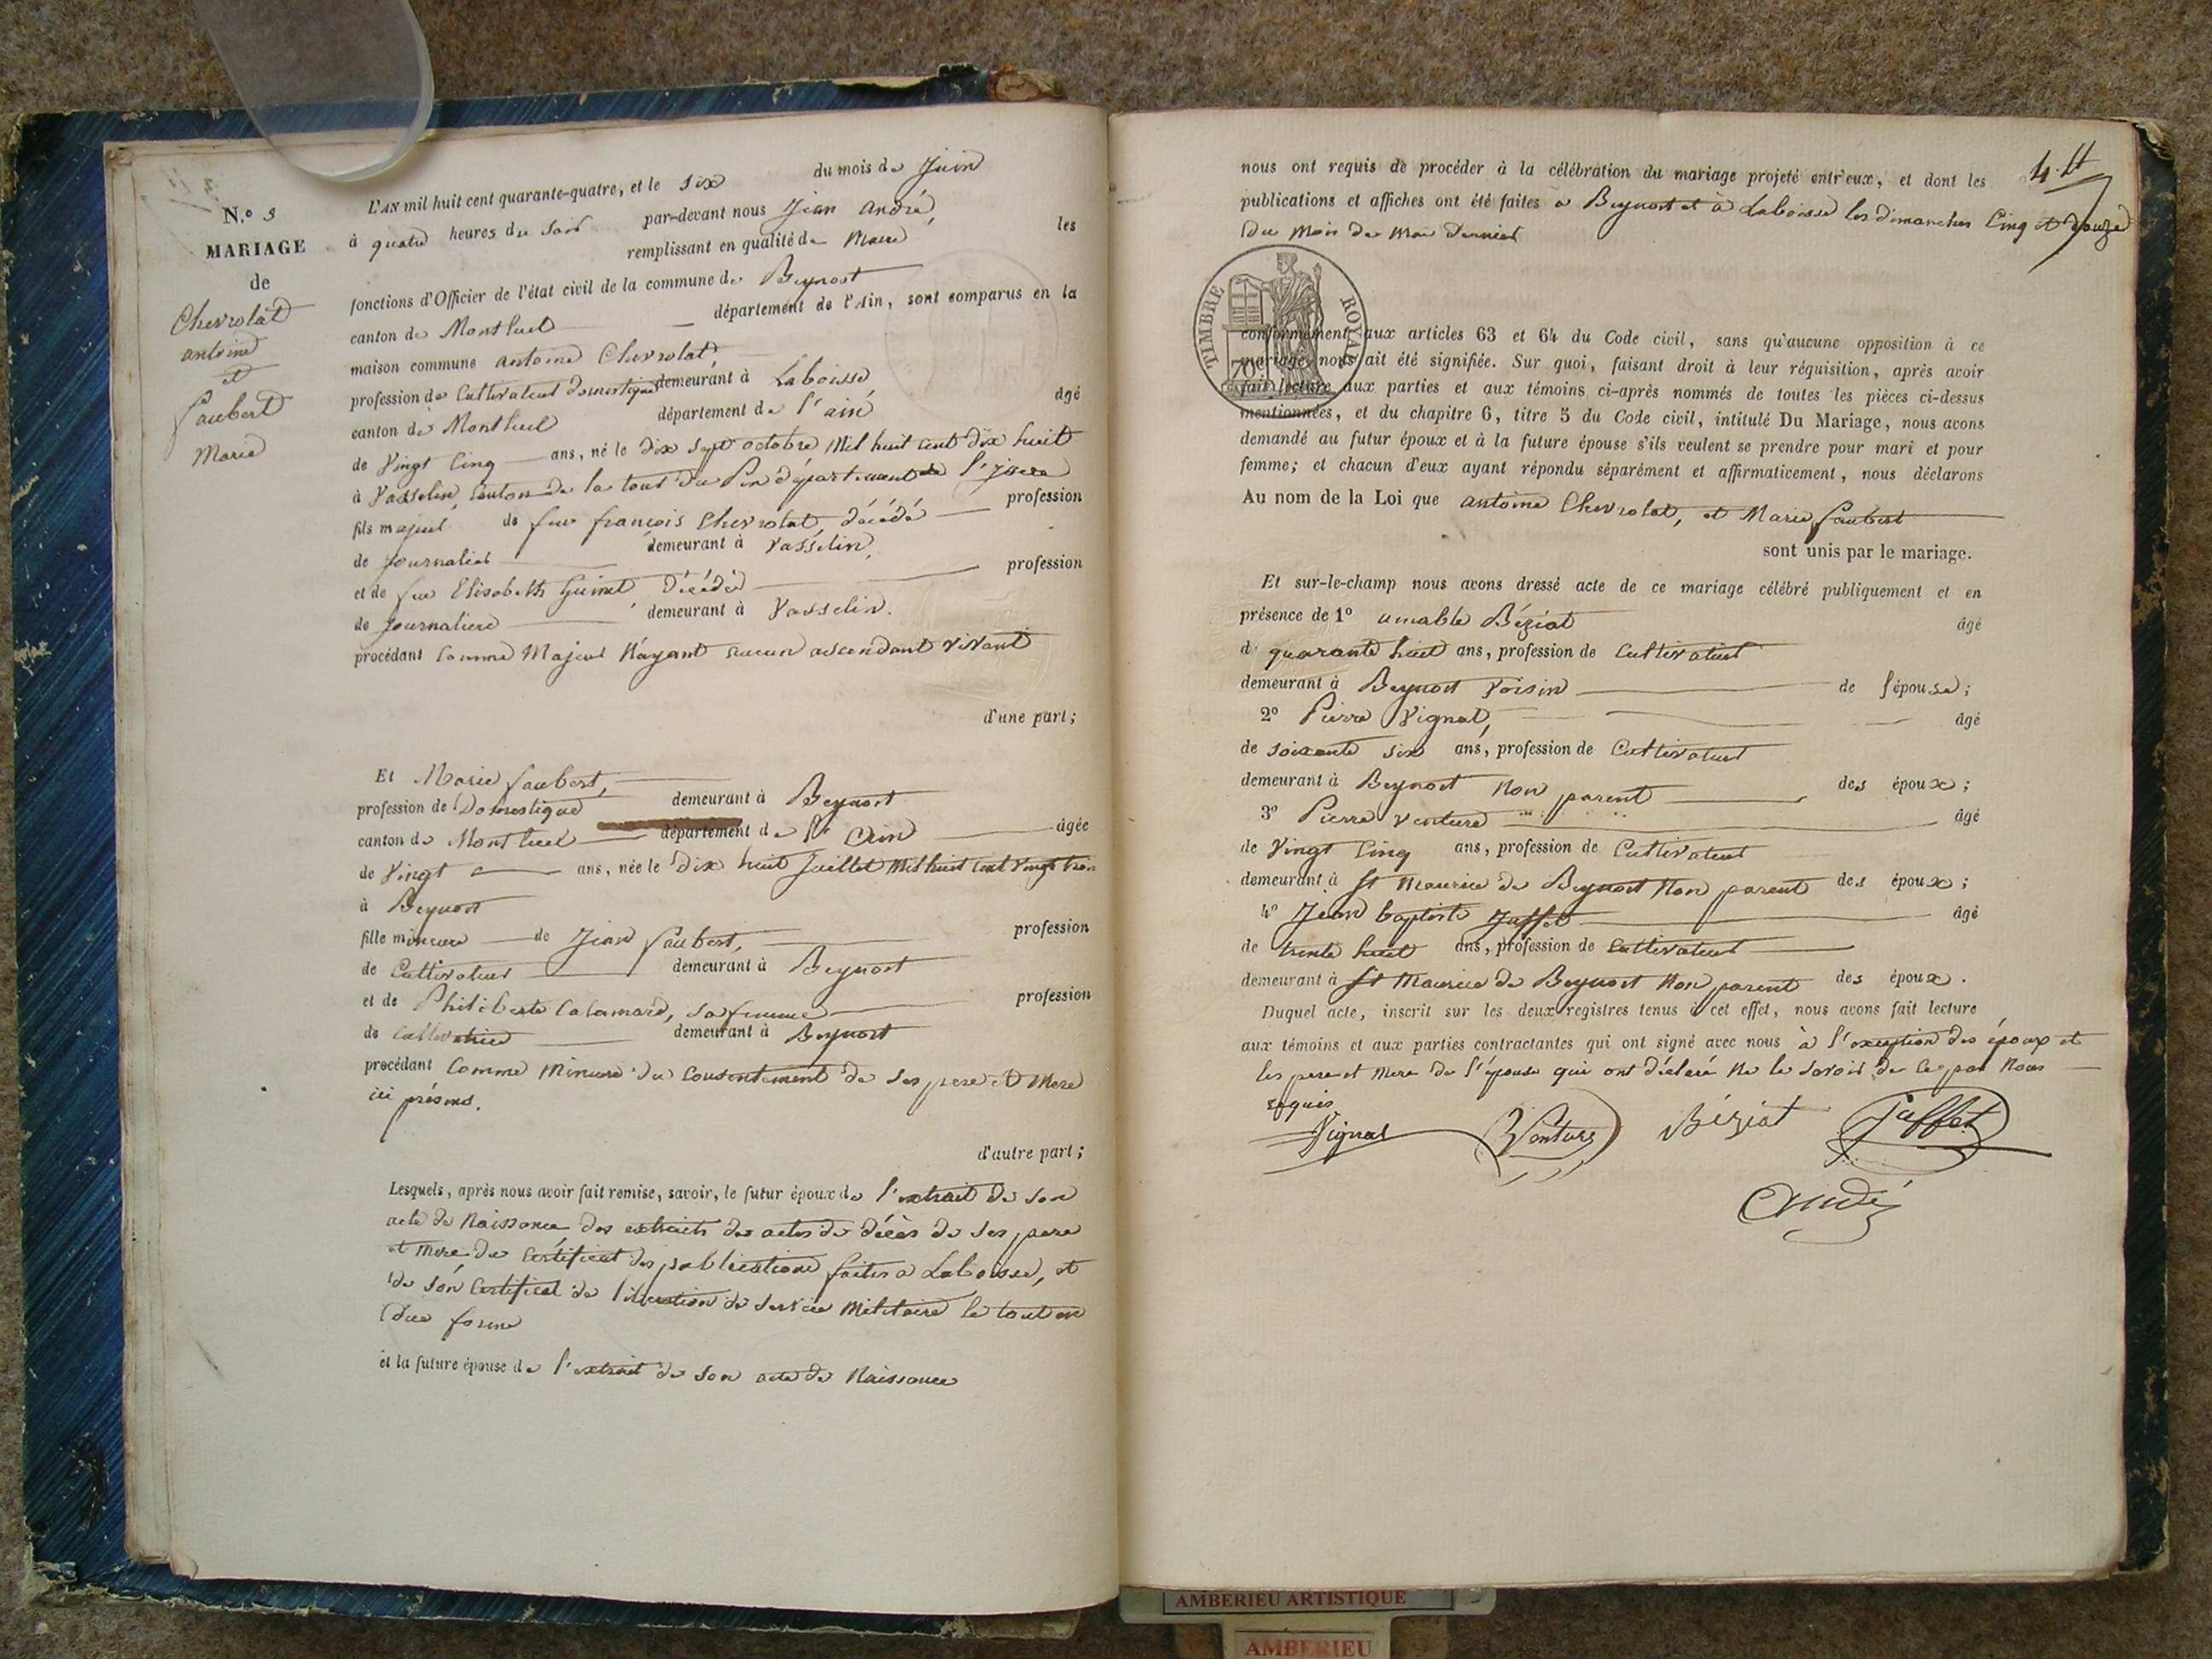 N.º 3
MARIAGE
de
Chevrolat
antoine
et
Faubert
Marie
L'AN mil huit cent quarante-quatre, et le six du mois de Juin
à quatre heures du soir par-devant nous Jean André,
remplissant en qualité de Maire les
fonctions d'Officier de l'état civil de la commune de Beynost
canton de Montluel département de l'Ain, sont comparus en la
maison commune antoine Chevrolat,
profession de Cultivateur domestique demeurant à Laboisse,
canton de Montluel département de l'ain âgé
de Vingt Cinq ans, né le dix sept octobre Mil huit cent dix huit
à Vasselin, Canton de la tour du Pin département de l'isere
fils majeur de feu françois Chevrolat, décédé profession
de Journalier demeurant à Vasselin,
et de feu Elisabeth Guinet, Décédée profession
de Journaliere demeurant à Vasselin.
procédant Comme Majeur N'ayant aucun ascendant Vivant
d'une part;
Et Marie faubert,
profession de Domestique demeurant à Beynost
canton de Montluel département de l'Ain âgée
de Vingt ans, née le dix huit Juillet Mil huit cent Vingt trois
à Beynost
fille mineure de Jean faubert, profession
de Cultivateur demeurant à Beynost
et de Philiberte Calamard, sa femme profession
de Cultivatrice demeurant à Beynost
procédant Comme Mineure du Consentement de ses pere et Mere
ici présens.
d'autre part;
Lesquels, après nous avoir fait remise, savoir, le futur époux de l'extrait de son
acte de Naissance des extraits des actes de décès de ses pere
et mere, du Certificat des publications faites a Laboisse, et
de son Certificat de libération de service Militaire le tout en
due forme
et la future épouse de l'extrait de son acte de Naissance
4
nous ont requis de procéder à la célébration du mariage projeté entr'eux, et dont les
publications et affiches ont été faites a Beynost et à Laboisse les dimanches Cinq et douze
du Mois de Mai dernier
TIMBRE ROYAL
70c
conformément aux articles 63 et 64 du Code civil, sans qu'aucune opposition à ce
mariage nous ait été signifiée. Sur quoi, faisant droit à leur réquisition, après avoir
fait lecture aux parties et aux témoins ci-après nommés de toutes les pièces ci-dessus
mentionnées, et du chapitre 6, titre 5 du Code civil, intitulé Du Mariage, nous avons
demandé au futur époux et à la future épouse s'ils veulent se prendre pour mari et pour
femme; et chacun d'eux ayant répondu séparément et affirmativement, nous déclarons
Au nom de la Loi que antoine Chevrolat, et Marie faubert
sont unis par le mariage.
Et sur-le-champ nous avons dressé acte de ce mariage célébré publiquement et en
présence de 1º amable Béziat âgé
de quarante huit ans, profession de Cultivateur
demeurant à Beynost Voisin de l'épouse;
2º Pierre Vignat, âgé
de soixante six ans, profession de Cultivateur
demeurant à Beynost Non parent des époux;
3º Pierre Venture âgé
de Vingt Cinq ans, profession de Cultivateur
demeurant à St Maurice de Beynost Non parent des époux;
4º Jean baptiste Juffet âgé
de trente huit ans, profession de Cultivateur
demeurant à St Maurice de Beynost Non parent des époux.
Duquel acte, inscrit sur les deux registres tenus à cet effet, nous avons fait lecture
aux témoins et aux parties contractantes qui ont signé avec nous à l'exception des époux et
les pere et Mere de l'épouse qui ont déclaré Ne le savoir de ce par Nous
requis
Vignat Venture Béziat Juffet
André
AMBERIEU ARTISTIQUE
AMBERIEU